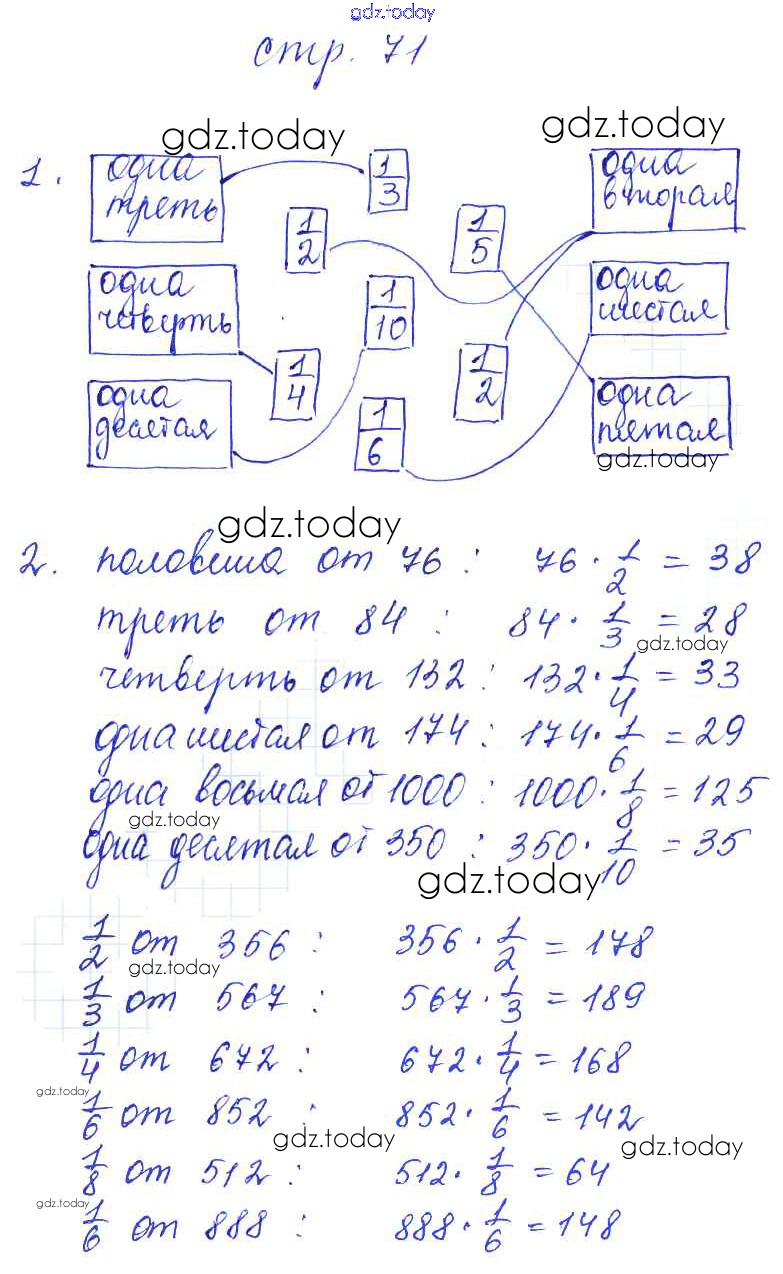 gdz.today
стр. 71
gdz.today
gdz.today
1. одна треть
1/3
одна вторая
1/2
1/5
одна четверть
1/10
одна шестая
1/4
1/2
одна десятая
1/6
одна пятая
gdz.today
gdz.today
2. половина от 76 : 76 · 1/2 = 38
треть от 84 : 84 · 1/3 = 28
gdz.today
четверть от 132 : 132 · 1/4 = 33
одна шестая от 174 : 174 · 1/6 = 29
одна восьмая от 1000 : 1000 · 1/8 = 125
gdz.today
одна десятая от 350 : 350 · 1/10 = 35
gdz.today
1/2 от 356 : 356 · 1/2 = 178
gdz.today
1/3 от 567 : 567 · 1/3 = 189
1/4 от 672 : 672 · 1/4 = 168
gdz.today
1/6 от 852 : 852 · 1/6 = 142
gdz.today
gdz.today
1/8 от 512 : 512 · 1/8 = 64
gdz.today
1/6 от 888 : 888 · 1/6 = 148